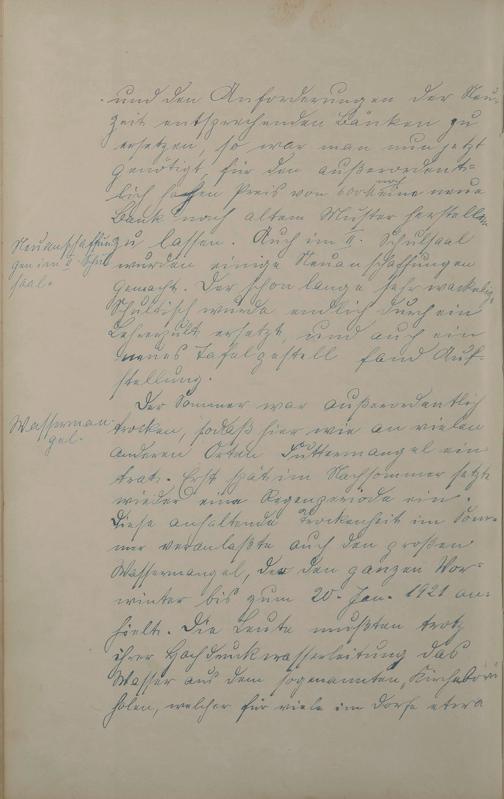 und den Anforderungen der Neu-
zeit entsprechenden Bänken zu
ersetzen, so war man nun jetzt
genötigt, für den außerordent-
lich hohen Preis von noch eine neue
Bank nach altem Muster herstellen
zu lassen. Auch im II. Schulsaal
Neuanschaffun-
gen im II. Schul-
saal.
wurden einige Neuanschaffungen
gemacht. Der schon lange sehr wackelige
Schultisch wurde endlich durch ein
Lehrerpult ersetzt, und auch ein
neues Tafelgestell fand Auf-
stellung.
Der Sommer war außerordentlich
Wasserman-
gel.
trocken, sodaß hier wie an vielen
anderen Orten Futtermangel ein
trat. Erst spät im Nachsommer setzte
wieder eine Regenperiode ein.
Diese anhaltende Trockenheit im Som-
mer veranlaßte auch den großen
Wassermangel, der den ganzen Vor-
winter bis zum 20. Jan. 1921 an-
hielt. Die Leute mußten trotz
ihrer Hochdruckwasserleitung das
Wasser aus dem sogenannten
holen, welcher für viele im Dorfe etwa